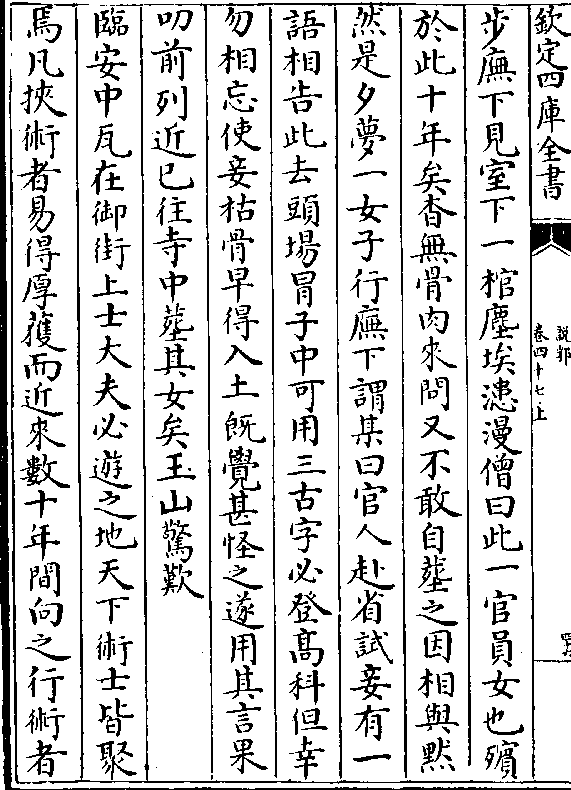 欽定四庫全書
說郛
卷四十七上
步廡下見室下一棺塵埃漶漫僧曰此一官員女也殯
於此十年矣杳無骨肉來問又不敢自塟之因相與黙
然是夕夢一女子行廡下謂某曰官人赴省試妾有一
語相告此去頭場冒子中可用三古字必登髙科但幸
勿相忘使妾枯骨早得入土既覺甚怪之遂用其言果
叨前列近已往寺中塟其女矣玉山驚歎
臨安中瓦在御街上士大夫必遊之地天下術士皆聚
焉凡挾術者易得厚獲而近來數十年間向之行術者